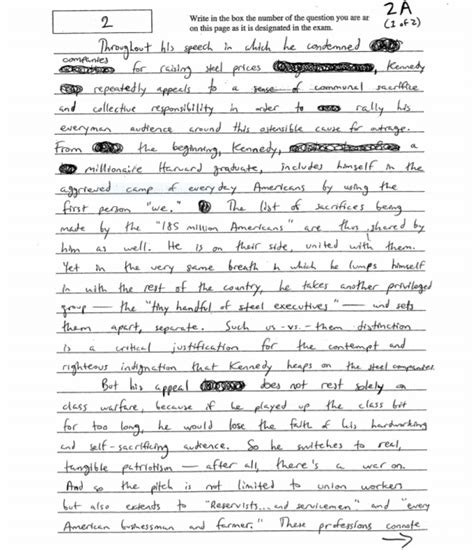 2
Write in the box the number of the question you are an
on this page as it is designated in the exam.
2A
(1 of 2)
Throughout his speech in which he condemned
companies
for raising steel prices, Kennedy
repeatedly appeals to a sense of communal sacrifice
and collective responsibility in order to rally his
everyman audience around this ostensible cause for outrage.
From the beginning, Kennedy, a
millionaire Harvard graduate, includes himself in the
aggrieved camp of everyday Americans by using the
first person "we." The list of sacrifices being
made by the "185 million Americans" are thus shared by
him as well. He is on their side, united with them.
Yet in the very same breath in which he lumps himself
in with the rest of the country, he takes another privileged
group — the "tiny handful of steel executives" — and sets
them apart, separate. Such us-vs.-them distinction
is a critical justification for the contempt and
righteous indignation that Kennedy heaps on the steel companies.
But his appeal does not rest solely on
class warfare, because if he played up the class bit
for too long, he would lose the faith of his hardworking
and self-sacrificing audience. So he switches to real,
tangible patriotism — after all, there's a war on.
And so the pitch is not limited to union workers
but also extends to "Reservists... and servicemen" and "every
American businessman and farmer." These professions connote